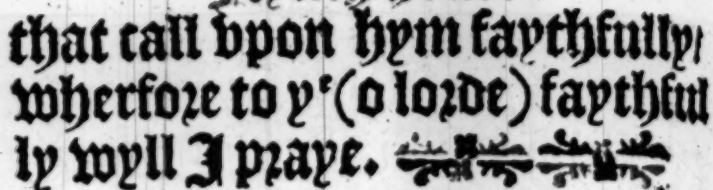 that call vpon hym faythfully/
wherfore to yͤ (o lorde) faythful
ly wyll I praye.